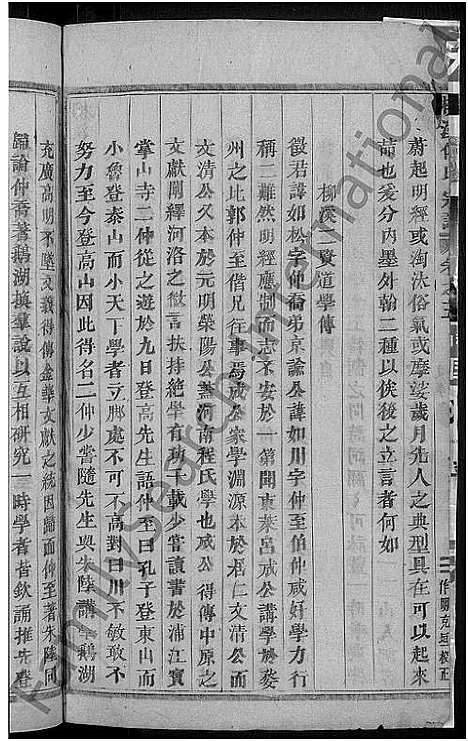 蔚起明經或淘汰俗氣或摩娑歲月先人之典型具在可以起來
喆也爰分內墨外翰二種以俟後之立言者何如
柳溪二賢道學傳
徵君諱如松字仲喬弟京諭公諱如川字仲至伯仲咸好學力行
稱二難然明經應制而志不安於一第聞東萊呂成公講學於婺
州之比郭仲至偕兄往事焉成公家學淵源本於榥仁文清公而
文清公又本於元明滎陽公蓋河南程氏學也成公得傳中原之
文獻開繹河洛之微言扶持絕學有功千載少嘗讀書於浦江寶
掌山寺二仲從之遊於九日登高先生語仲至曰孔子登東山而
小魯登泰山而小天下學者立腳處不可不高對曰川不敏敢不
努力至今登高山因此得名二仲少嘗隨先生與朱陸講學鵝湖
充廣高明不墜文義得傳金華文獻之統因歸面仲至著朱陸同
歸論仲喬著鵝湖換羣說以互相研究一時學者皆欽誦推先卷
Family Search International